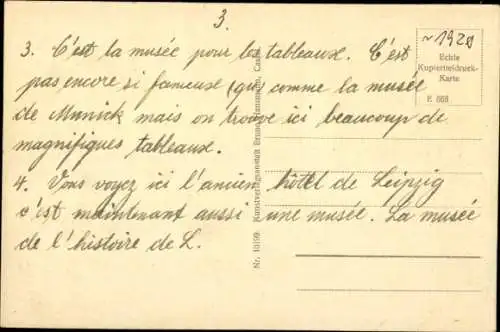 3.
~1920
Echte
Kupfertiefdruck-
Karte
E 668
3. C'est la musée pour les tableaux. C'est
pas encore si fameuse (qu) comme la musée
de Munick mais on trouve ici beaucoup de
magnifiques tableaux.
4. Vous voyez ici l'ancien hôtel de Leipzig
c'est maintenant aussi une musée. La musée
de l'histoire de L.
Nr. 10199 Kunstverlagsanstalt Bruno